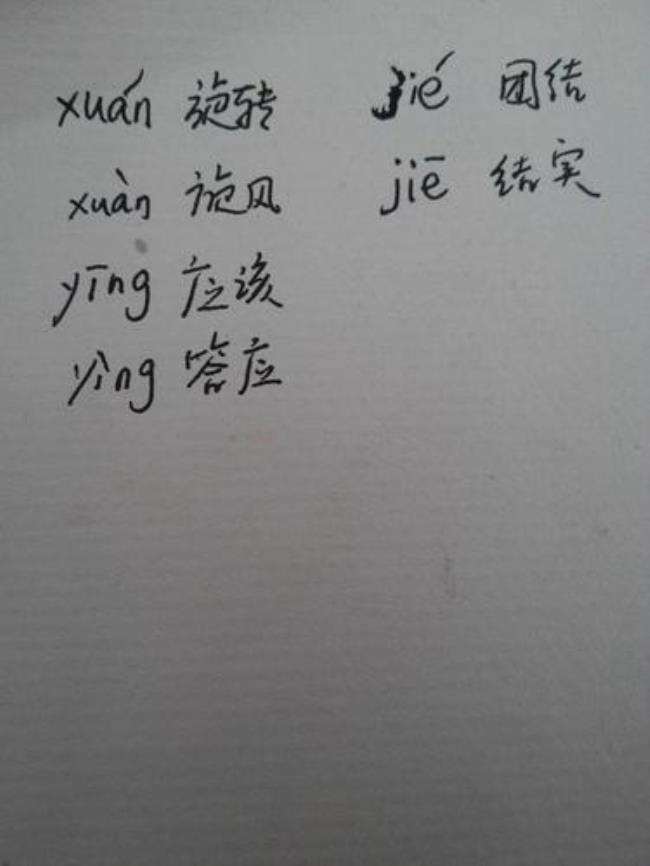 xuán 旋转 jié 团结
xuàn 旋风 jiē 结实
yīng 应该
yìng 答应